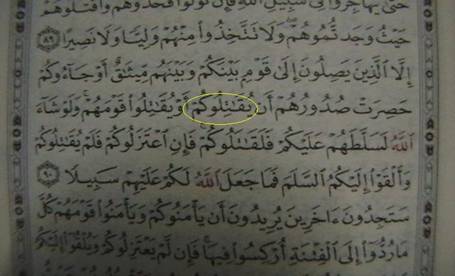 حَتَّىٰ يُهَاجِرُوا۟ فِى سَبِيلِ ٱللَّهِ فَإِن تَوَلَّوْا۟ فَخُذُوهُمْ وَٱقْتُلُوهُمْ
حَيْثُ وَجَدتُّمُوهُمْ وَلَا تَتَّخِذُوا۟ مِنْهُمْ وَلِيًّا وَلَا نَصِيرًا ٨٩
إِلَّا ٱلَّذِينَ يَصِلُونَ إِلَىٰ قَوْمٍۭ بَيْنَكُمْ وَبَيْنَهُم مِّيثَٰقٌ أَوْ جَآءُوكُمْ
حَصِرَتْ صُدُورُهُمْ أَن يُقَٰتِلُوكُمْ أَوْ يُقَٰتِلُوا۟ قَوْمَهُمْ ۚ وَلَوْ شَآءَ
ٱللَّهُ لَسَلَّطَهُمْ عَلَيْكُمْ فَلَقَٰتَلُوكُمْ ۚ فَإِنِ ٱعْتَزَلُوكُمْ فَلَمْ يُقَٰتِلُوكُمْ
وَأَلْقَوْا۟ إِلَيْكُمُ ٱلسَّلَمَ فَمَا جَعَلَ ٱللَّهُ لَكُمْ عَلَيْهِمْ سَبِيلًا ٩٠
سَتَجِدُونَ ءَاخَرِينَ يُرِيدُونَ أَن يَأْمَنُوكُمْ وَيَأْمَنُوا۟ قَوْمَهُمْ كُلَّ
مَا رُدُّوٓا۟ إِلَى ٱلْفِتْنَةِ أُرْكِسُوا۟ فِيهَا ۚ فَإِن لَّمْ يَعْتَزِلُوكُمْ وَيُلْقُوٓا۟ إِلَيْكُمُ